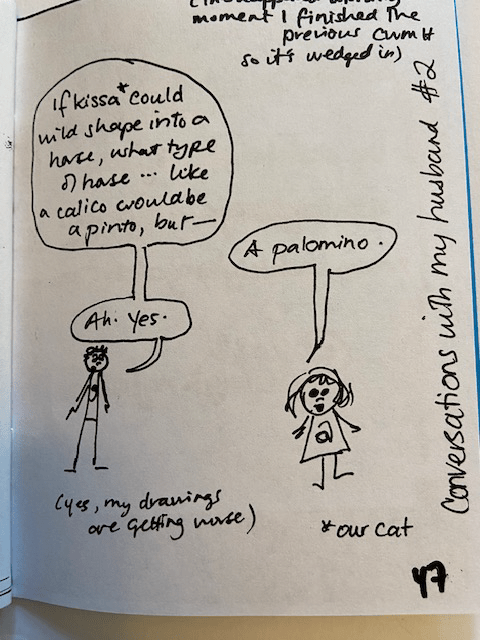 moment I finished the
previous cwm#
so it's wedged in)
If kissa* could
wild shape into a
horse, what type
of horse ... like
a calico would be
a pinto, but —
A palomino.
Ah. Yes.
a
(yes, my drawings
are getting worse)
*our cat
Conversations with my husband #2
47